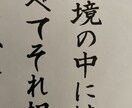 境の中に
べてそれ